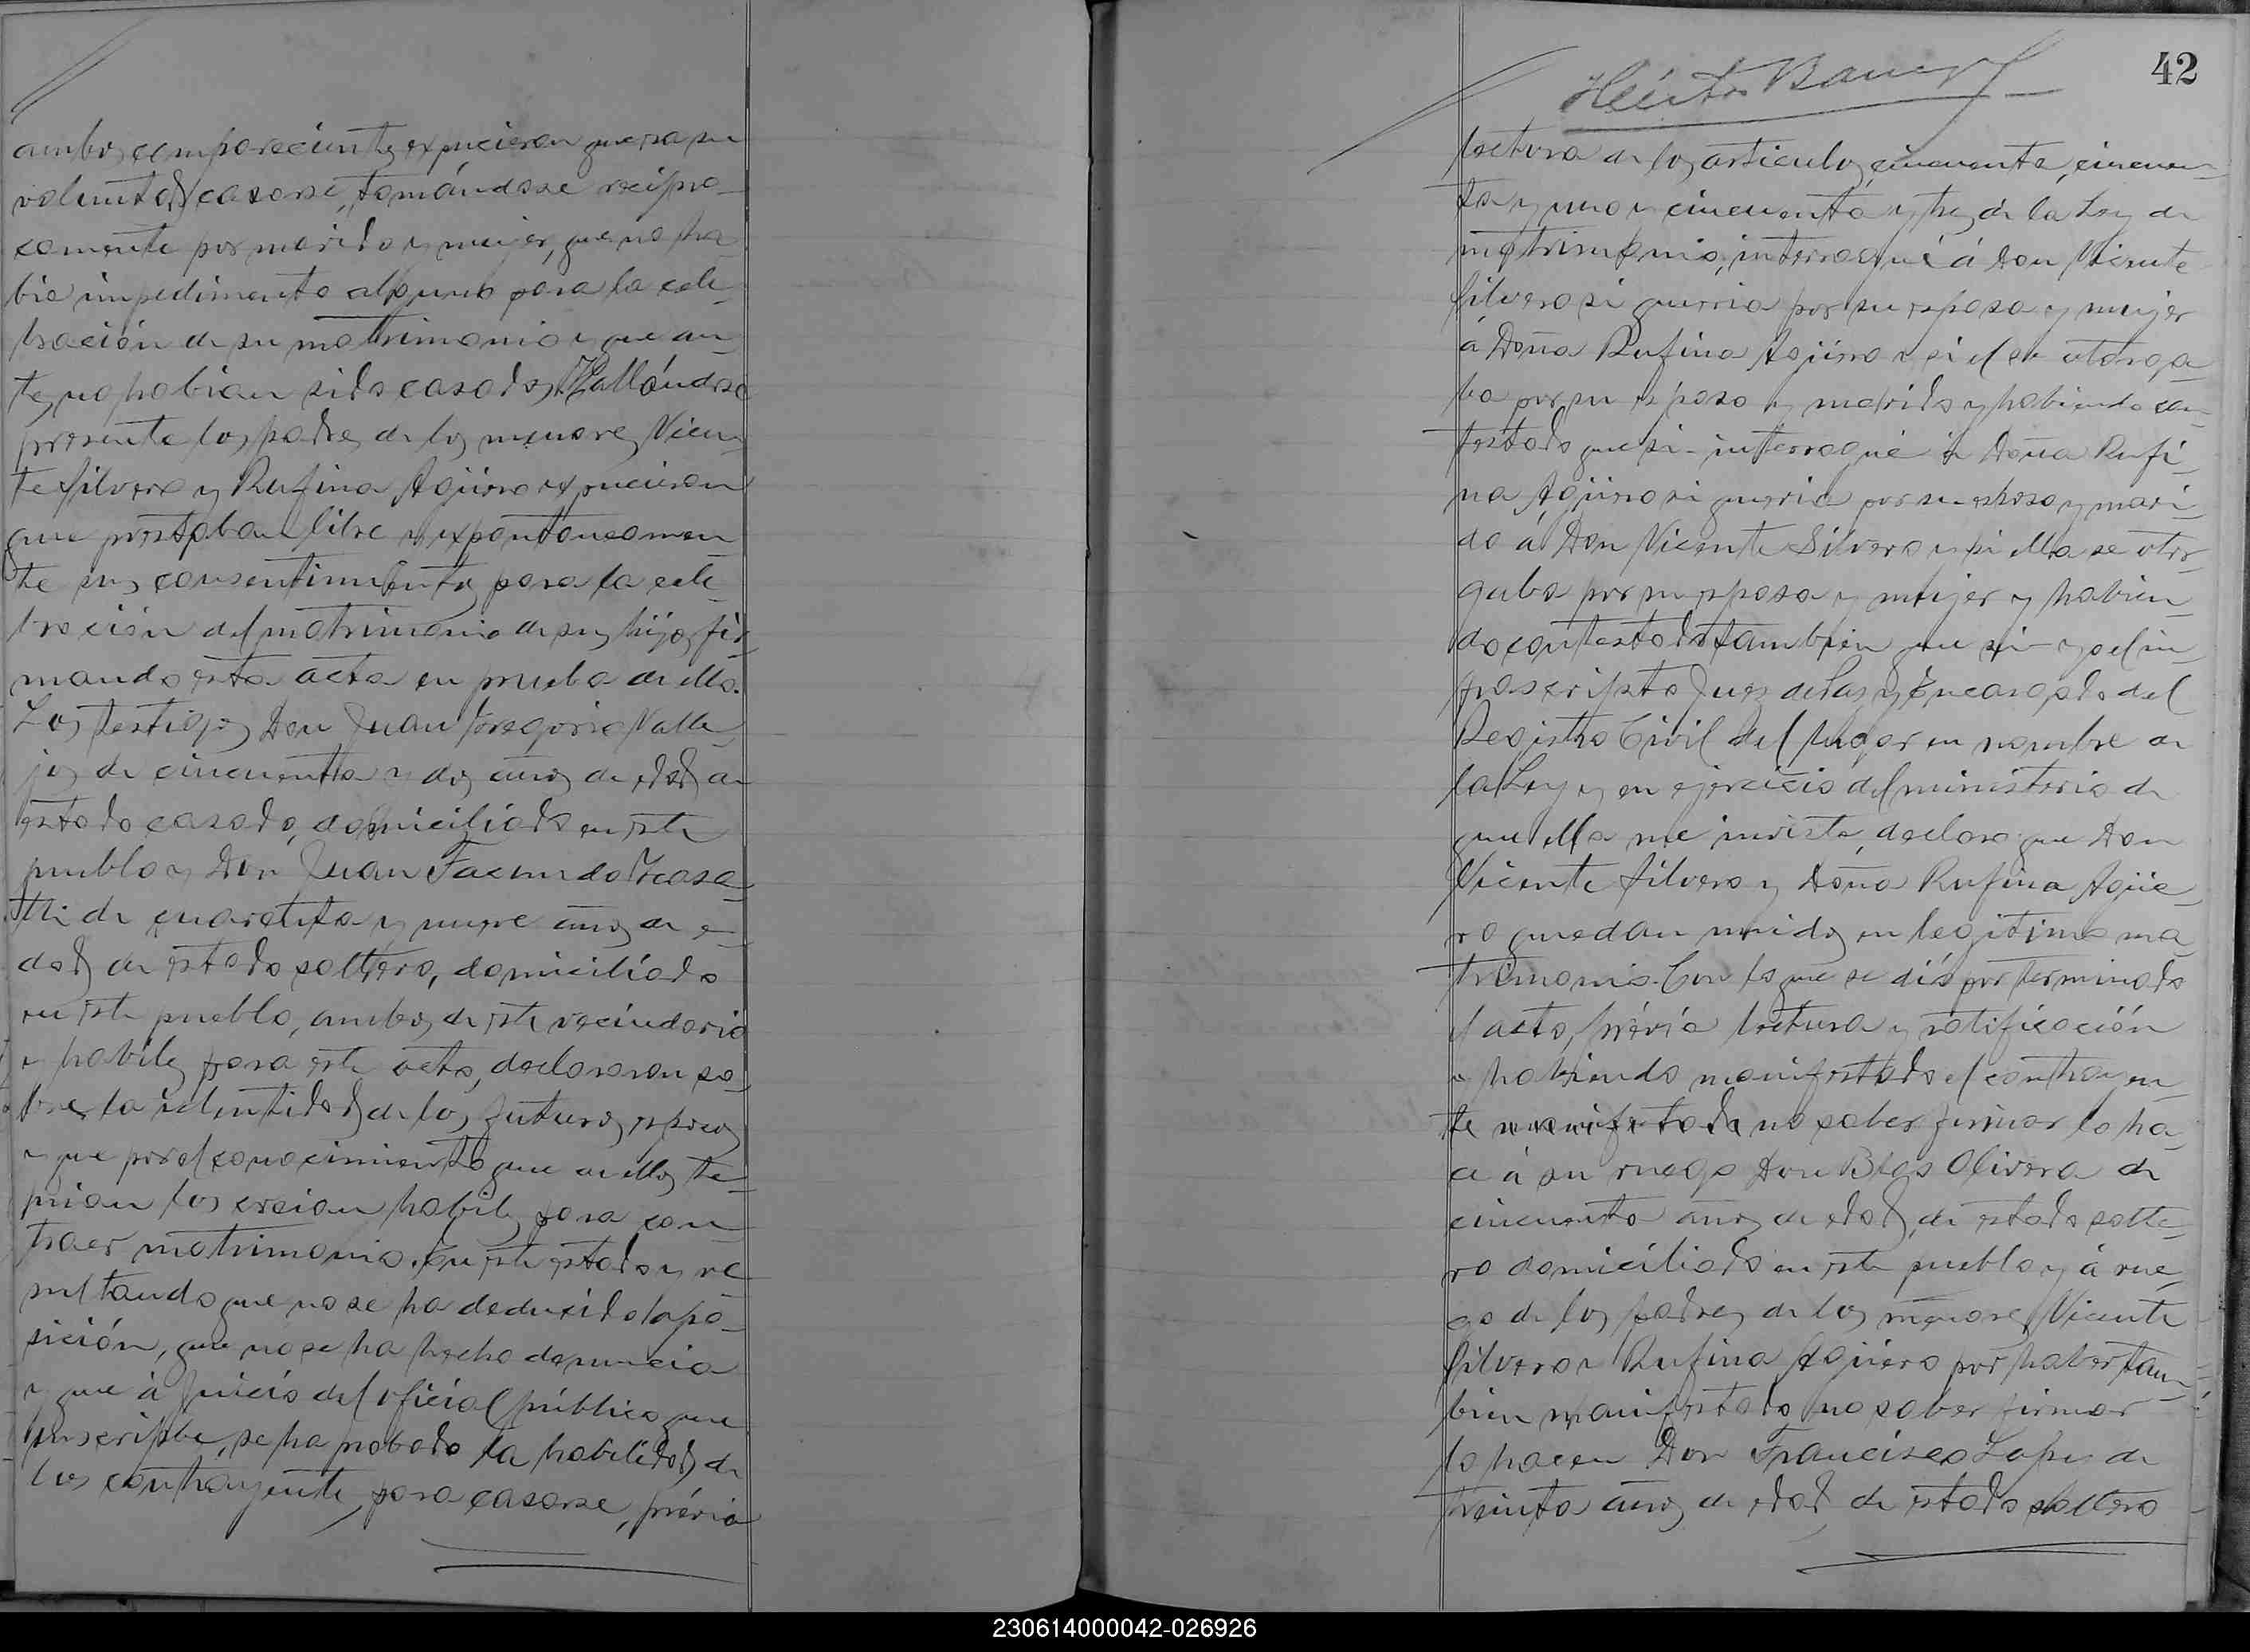 ambos comparecientes expucieron que era su
voluntad casarse, tomándose recipro-
camente por marido y mujer, que no ha-
bia impedimento alguno para la cele-
bración de su matrimonio y que an-
tes no habian sido casados. Hallándose
presente los padres de los menores Vicen-
te Silvero y Rufina Agüero expucieron
que prestaban libre y expontaneamen-
te sus consentimientos para la cele-
bración del matrimonio de sus hijos fir-
mando esta acta en prueba de ello.
Los testigos Don Juan Gregorio Valle-
jos de cincuenta y dos años de edad de
estado casado, domiciliado en este
pueblo y Don Juan Facundo
de cuarenta y nueve años de e-
dad de estado soltero, domiciliado
en este pueblo, ambos de este vecindario
y habiles para este acto, declararon so-
bre la identidad de los futuros esposos
y que por el conocimiento que de ellos te-
nian los creian habiles para con-
traer matrimonio. En este estado y re-
sultando que no se ha deducido opo-
sición, que no se ha hecho denuncia
y que á juicio del oficial público que
suscribe, se ha probado la habilidad de
los contrayentes para casarse, prévia
42
Héctor
lectura de los articulos cincuenta, cincuen-
ta y uno y cincuenta y tres de la Ley de
matrimonio, interrogué á Don Vicente
Silvero si querria por su esposa y mujer
á Doña Rufina Agüero y si el se otorga-
ba por su esposo y marido y habiendo con-
testado que si - interrogué á Doña Rufi-
na Agüero si queria por su esposo y mari-
do á Don Vicente Silvero y si ella se otor-
gaba por su esposa y mujer y habien-
do contestado tambien que si - yo el in-
frascripto Juez de Paz y Encargado del
Registro Civil del lugar en nombre de
la Ley y en ejercicio del ministerio de
que ella me inviste, declaro que Don
Vicente Silvero y Doña Rufina Agüe-
ro quedan unidos en legitimo ma-
trimonio. Con lo que se dió por terminado
el acto, prévia lectura y ratificación
y habiendo manifestado el contrayen-
te manifestado no saber firmar lo ha-
ce á su ruego Don Blas Olivera de
cincuenta años de edad, de estado solte-
ro domiciliado en este pueblo y á rue-
go de los padres de los menores Vicente
Silvero y Rufina Agüero por haber tam-
bien manifestado no saber firmar
lo hacen Don Francisco Lopez de
treinta años de edad de estado soltero
230614000042-026926